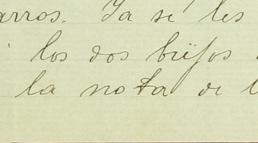 arros. Ya se les
los dos bifos
la nota de l